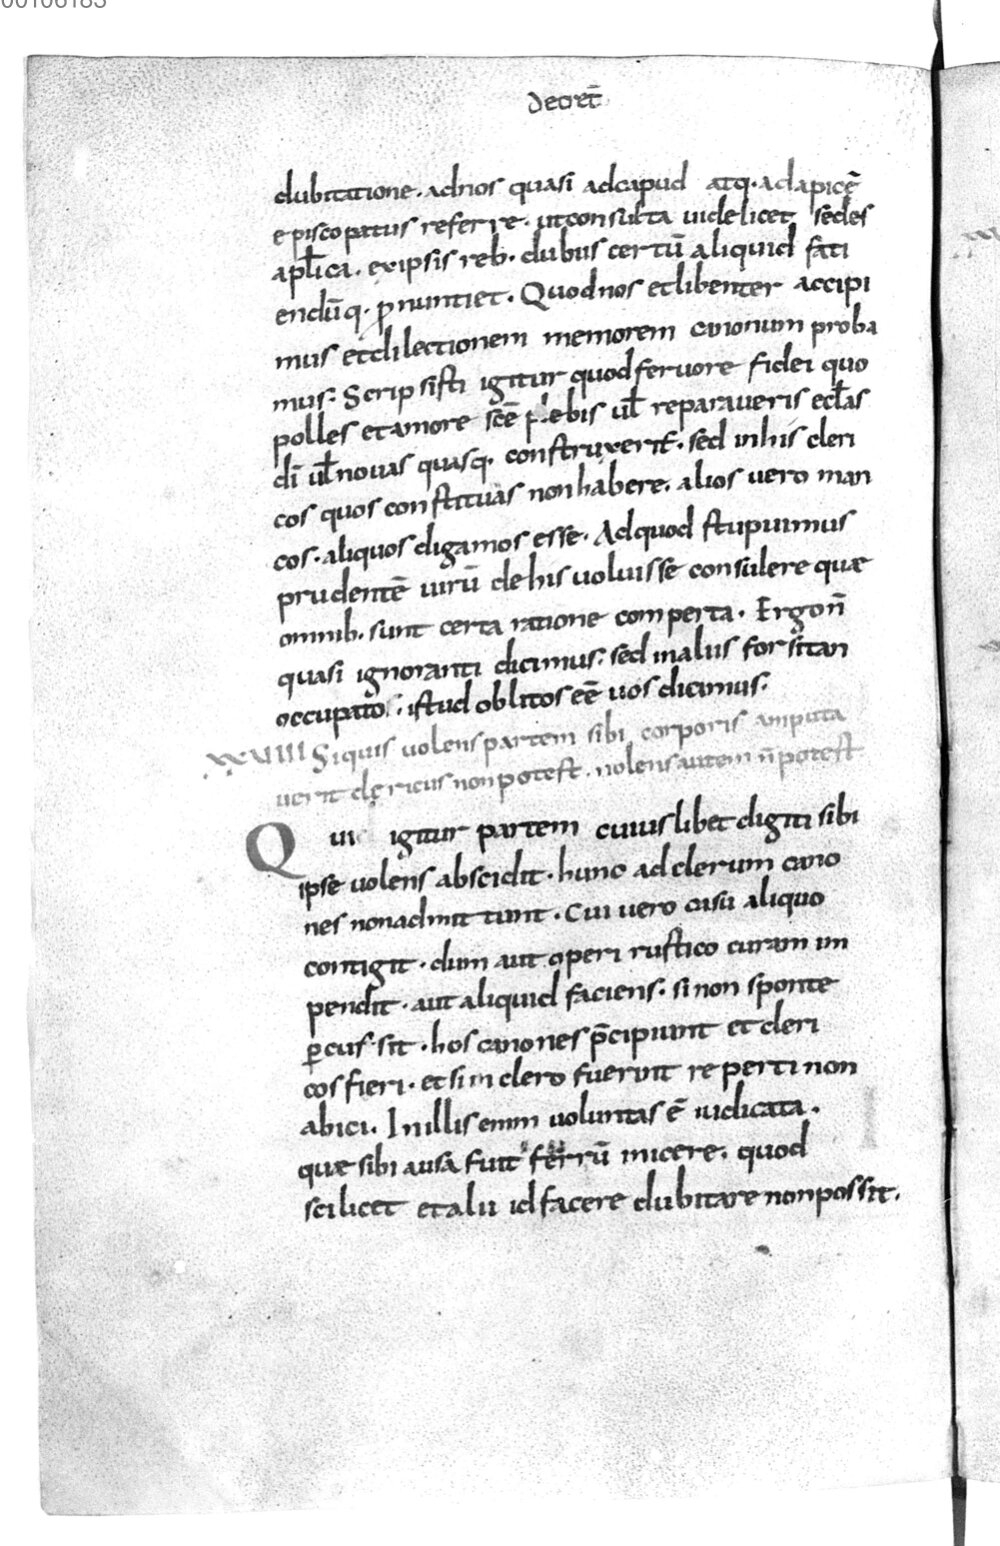 00106183
Decret̄
dubitatione · adnos quasi adcapud atq · adapicē
episcopatus referre · utconsulta uidelicet sedes
apl̄ica · exipsis reb · dubiis certū aliquid fati
endūq · p̄nuntiet · Quodnos etlibenter accipi
mus etdilectionem memorem canonum proba
mus : Scripsisti igitur quodferuore fidei quo
polles etamore scē plebis ul̄ reparaueris ecl̄as
dī ul̄ nouas quasq · construxerit · sed inhis cleri
cos quos constituas nonhabere · alios uero man
cos · aliquos digamos esse · Adquod stupuimus
prudentē uirū dehis uoluisse consulere quæ
omnib · sunt certa ratione comperta · Ergo n̄
quasi ignoranti dicimus : sed inaliis forsitan
occupatos · istud oblitos eē uos dicimus :
XXVIIII Siquis uolens partem sibi corporis amputa
uerit clęricus nonpotest · nolens autem n̄ potest
Qui igitur partem cuiuslibet digiti sibi
ipse uolens abscidit · hunc adclerum cano
nes nonadmittunt · Cui uero casu aliquo
contigit · dum aut operi rustico curam im
pendit · aut aliquid faciens · sinon sponte
p̄cussit · hos canones p̄cipiunt et cleri
cos fieri · et si in clero fuerint reperti non
abici · Inillis enim uoluntas ē iudicata ·
quæ sibi ausa fuit ferrū inicere · quod
scilicet et alii id facere dubitare nonpossit ·